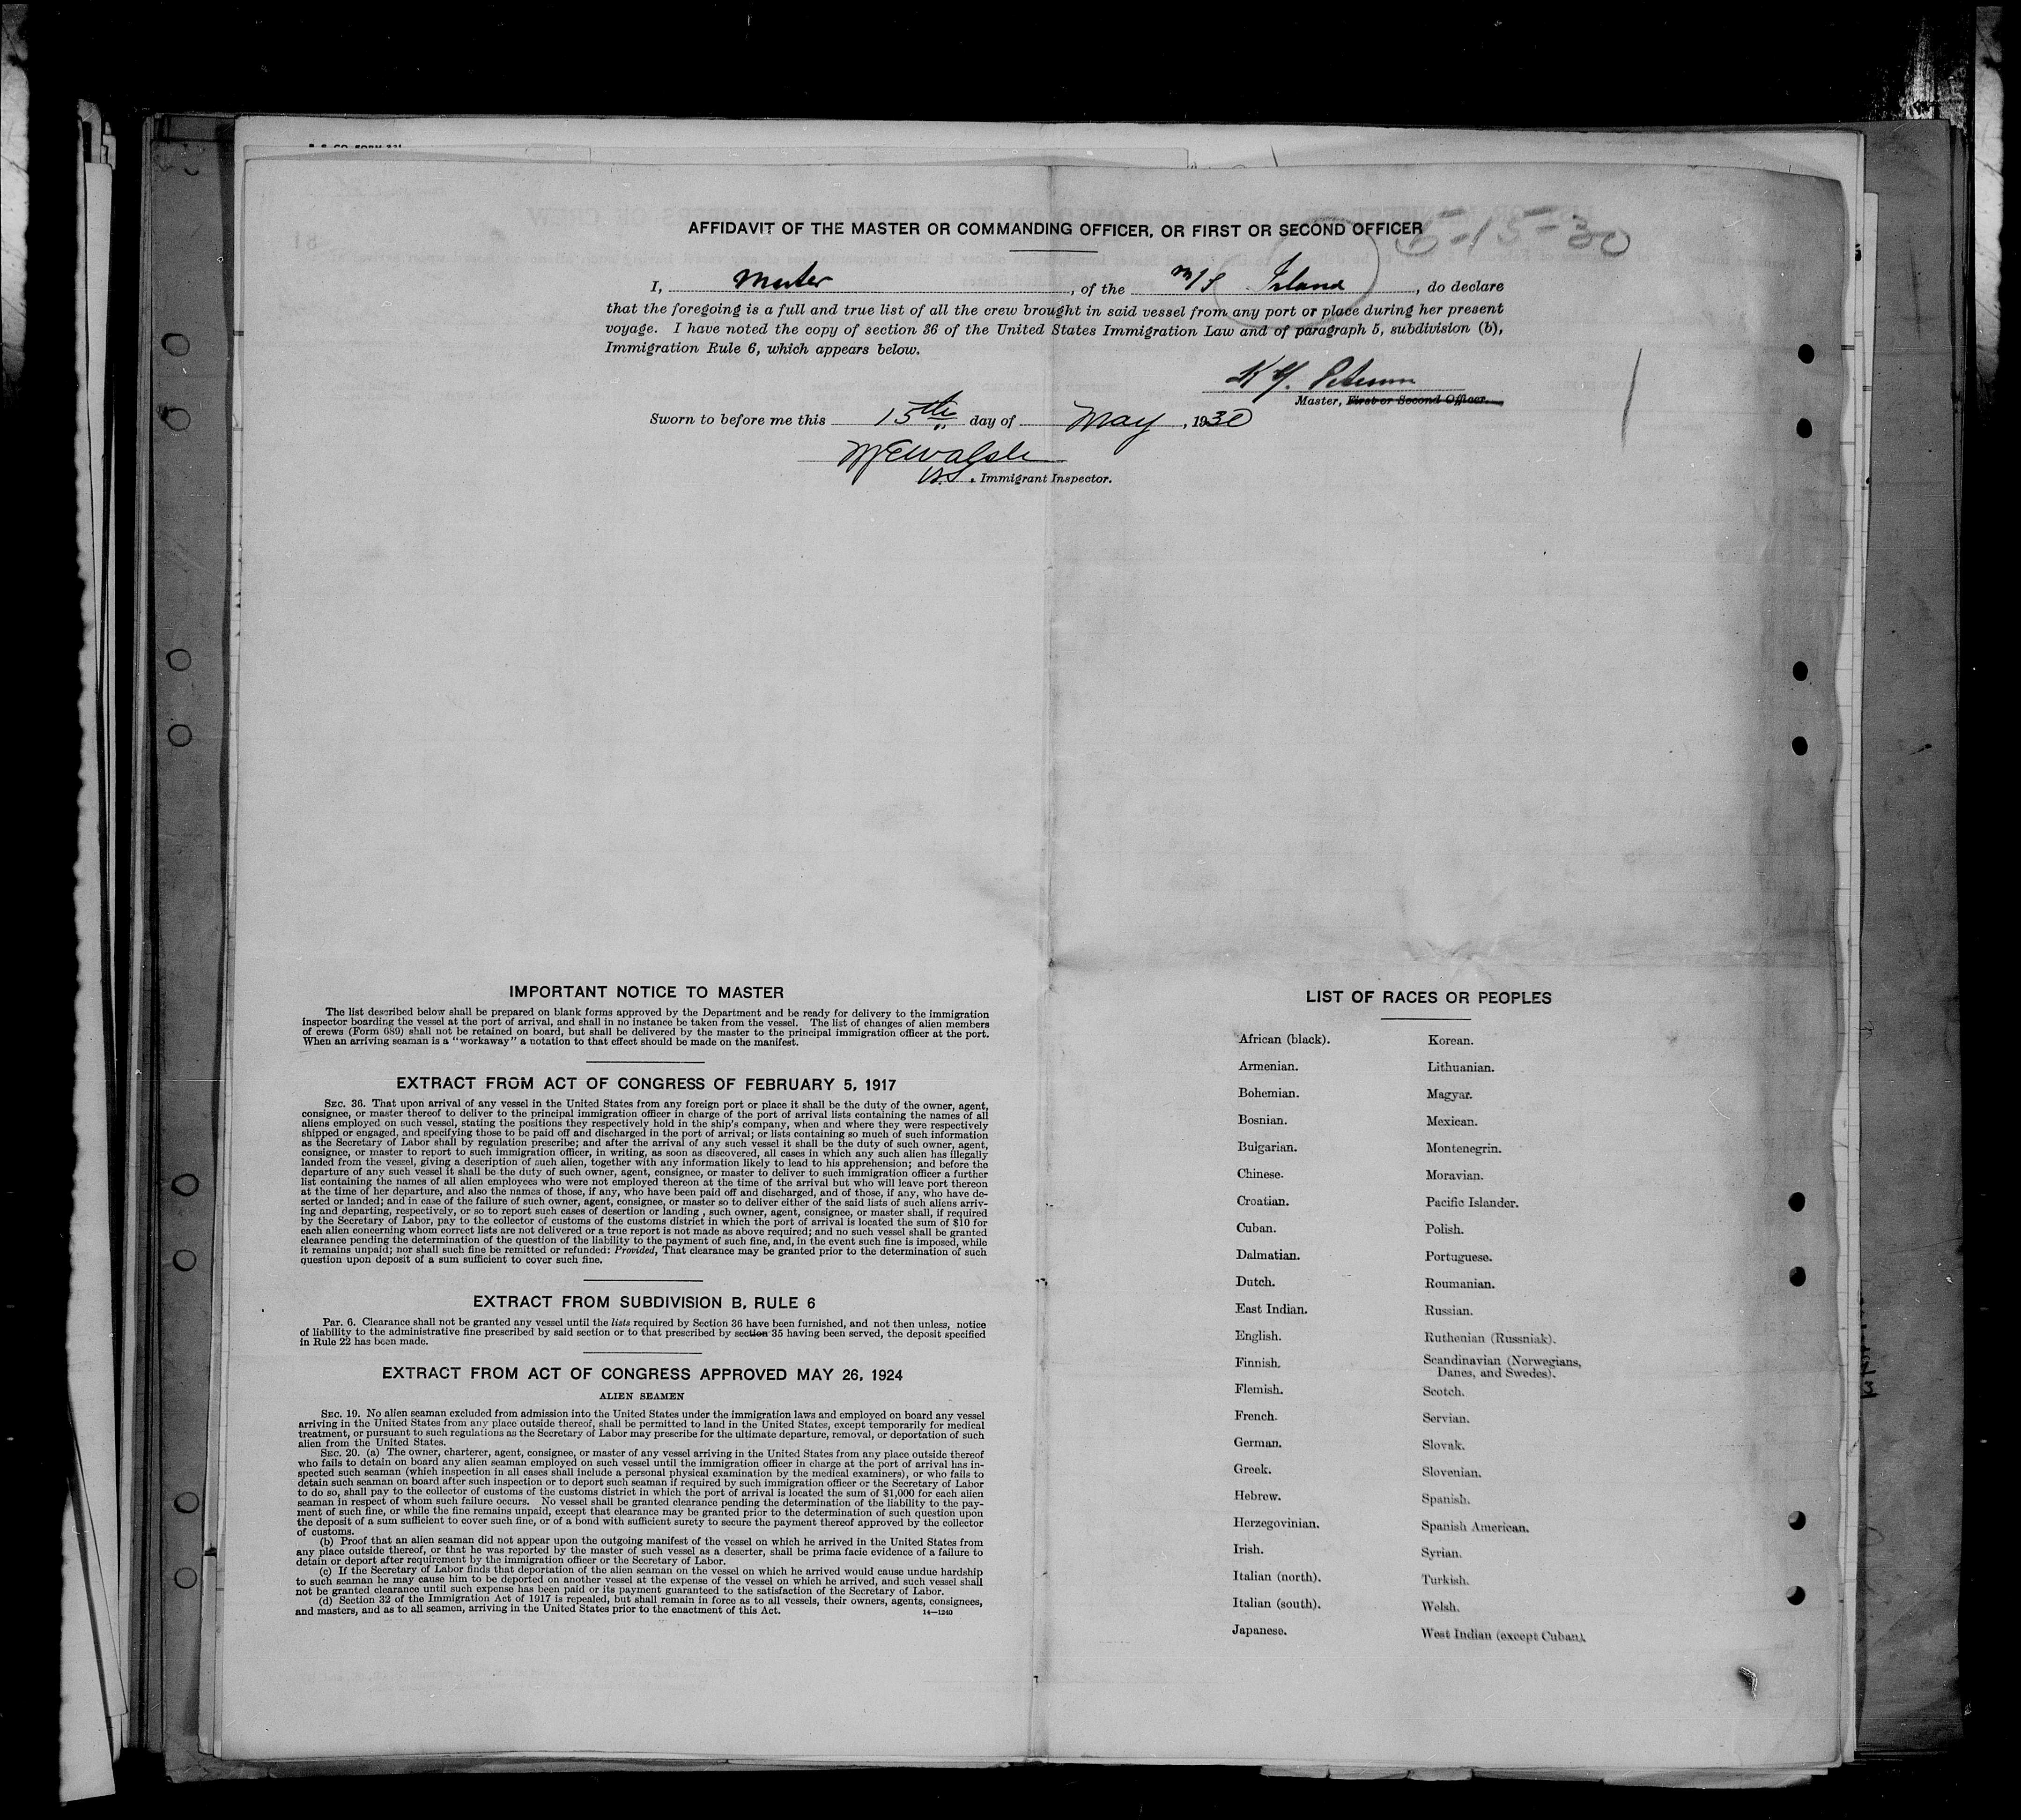 AFFIDAVIT OF THE MASTER OR COMMANDING OFFICER, OR FIRST OR SECOND OFFICER
5-15-30
I, Master, of the M/S Island, do declare
that the foregoing is a full and true list of all the crew brought in said vessel from any port or place during her present
voyage. I have noted the copy of section 36 of the United States Immigration Law and of paragraph 5, subdivision (b),
Immigration Rule 6, which appears below.
Master, First or Second Officer.
Sworn to before me this 15th day of May, 1930
Immigrant Inspector.
IMPORTANT NOTICE TO MASTER
The list described below shall be prepared on blank forms approved by the Department and be ready for delivery to the immigration
inspector boarding the vessel at the port of arrival, and shall in no instance be taken from the vessel. The list of changes of alien members
of crews (Form 689) shall not be retained on board, but shall be delivered by the master to the principal immigration officer at the port.
When an arriving seaman is a "workaway" a notation to that effect should be made on the manifest.
EXTRACT FROM ACT OF CONGRESS OF FEBRUARY 5, 1917
SEC. 36. That upon arrival of any vessel in the United States from any foreign port or place it shall be the duty of the owner, agent,
consignee, or master thereof to deliver to the principal immigration officer in charge of the port of arrival lists containing the names of all
aliens employed on such vessel, stating the positions they respectively hold in the ship's company, when and where they were respectively
shipped or engaged, and specifying those to be paid off and discharged in the port of arrival; or lists containing so much of such information
as the Secretary of Labor shall by regulation prescribe; and after the arrival of any such vessel it shall be the duty of such owner, agent,
consignee, or master to report to such immigration officer, in writing, as soon as discovered, all cases in which any such alien has illegally
landed from the vessel, giving a description of such alien, together with any information likely to lead to his apprehension; and before the
departure of any such vessel it shall be the duty of such owner, agent, consignee, or master to deliver to such immigration officer a further
list containing the names of all alien employees who were not employed thereon at the time of the arrival but who will leave port thereon
at the time of her departure, and also the names of those, if any, who have been paid off and discharged, and of those, if any, who have de-
serted or landed; and in case of the failure of such owner, agent, consignee, or master so to deliver either of the said lists of such aliens arriv-
ing and departing, respectively, or so to report such cases of desertion or landing , such owner, agent, consignee, or master shall, if required
by the Secretary of Labor, pay to the collector of customs of the customs district in which the port of arrival is located the sum of $10 for
each alien concerning whom correct lists are not delivered or a true report is not made as above required; and no such vessel shall be granted
clearance pending the determination of the question of the liability to the payment of such fine, and, in the event such fine is imposed, while
it remains unpaid; nor shall such fine be remitted or refunded: Provided, That clearance may be granted prior to the determination of such
question upon deposit of a sum sufficient to cover such fine.
EXTRACT FROM SUBDIVISION B, RULE 6
Par. 6. Clearance shall not be granted any vessel until the lists required by Section 36 have been furnished, and not then unless, notice
of liability to the administrative fine prescribed by said section or to that prescribed by section 35 having been served, the deposit specified
in Rule 22 has been made.
EXTRACT FROM ACT OF CONGRESS APPROVED MAY 26, 1924
ALIEN SEAMEN
SEC. 19. No alien seaman excluded from admission into the United States under the immigration laws and employed on board any vessel
arriving in the United States from any place outside thereof, shall be permitted to land in the United States, except temporarily for medical
treatment, or pursuant to such regulations as the Secretary of Labor may prescribe for the ultimate departure, removal, or deportation of such
alien from the United States.
SEC. 20. (a) The owner, charterer, agent, consignee, or master of any vessel arriving in the United States from any place outside thereof
who fails to detain on board any alien seaman employed on such vessel until the immigration officer in charge at the port of arrival has in-
spected such seaman (which inspection in all cases shall include a personal physical examination by the medical examiners), or who fails to
detain such seaman on board after such inspection or to deport such seaman if required by such immigration officer or the Secretary of Labor
to do so, shall pay to the collector of customs of the customs district in which the port of arrival is located the sum of $1,000 for each alien
seaman in respect of whom such failure occurs. No vessel shall be granted clearance pending the determination of the liability to the pay-
ment of such fine, or while the fine remains unpaid, except that clearance may be granted prior to the determination of such question upon
the deposit of a sum sufficient to cover such fine, or of a bond with sufficient surety to secure the payment thereof approved by the collector
of customs.
(b) Proof that an alien seaman did not appear upon the outgoing manifest of the vessel on which he arrived in the United States from
any place outside thereof, or that he was reported by the master of such vessel as a deserter, shall be prima facie evidence of a failure to
detain or deport after requirement by the immigration officer or the Secretary of Labor.
(c) If the Secretary of Labor finds that deportation of the alien seaman on the vessel on which he arrived would cause undue hardship
to such seaman he may cause him to be deported on another vessel at the expense of the vessel on which he arrived, and such vessel shall
not be granted clearance until such expense has been paid or its payment guaranteed to the satisfaction of the Secretary of Labor.
(d) Section 32 of the Immigration Act of 1917 is repealed, but shall remain in force as to all vessels, their owners, agents, consignees,
and masters, and as to all seamen, arriving in the United States prior to the enactment of this Act.
14—1240
LIST OF RACES OR PEOPLES
African (black).
Armenian.
Bohemian.
Bosnian.
Bulgarian.
Chinese.
Croatian.
Cuban.
Dalmatian.
Dutch.
East Indian.
English.
Finnish.
Flemish.
French.
German.
Greek.
Hebrew.
Herzegovinian.
Irish.
Italian (north).
Italian (south).
Japanese.
Korean.
Lithuanian.
Magyar.
Mexican.
Montenegrin.
Moravian.
Pacific Islander.
Polish.
Portuguese.
Roumanian.
Russian.
Ruthenian (Russniak).
Scandinavian (Norwegians,
Danes, and Swedes).
Scotch.
Servian.
Slovak.
Slovenian.
Spanish.
Spanish American.
Syrian.
Turkish.
Welsh.
West Indian (except Cuban).